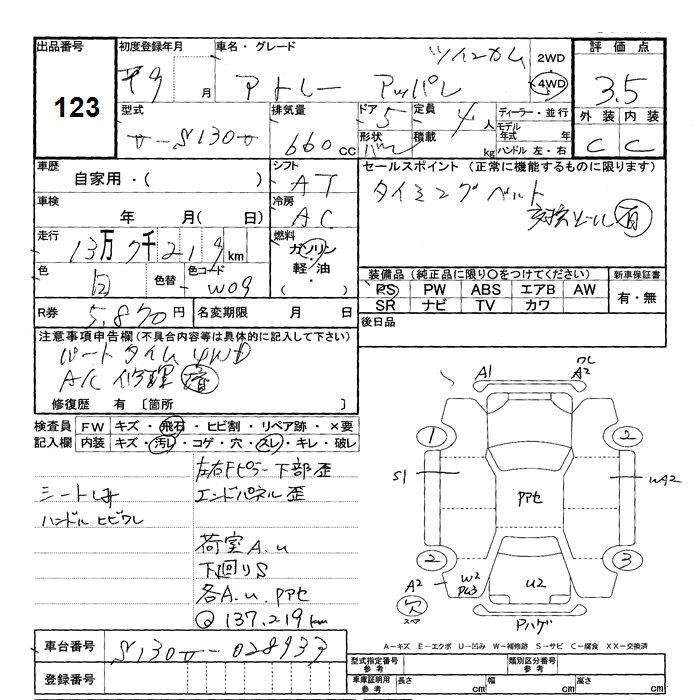 出品番号
123
初度登録年月
月
車名・グレード
アトレー アッパレ
ツインカム
2WD
4WD
評価点
3.5
外装 内装
C C
型式
V-S130V
排気量
660cc
ドア
5
形状
バン
定員
4人
積載
kg
ディーラー・並行
モデル年式 年
ハンドル 左・右
車歴
自家用・( )
車検
年 月( 日)
走行
13万7千219km
色
白
色替
色コード
W09
シフト
AT
冷房
AC
燃料
ガソリン
軽・油
( )
セールスポイント(正常に機能するものに限ります)
タイミングベルト
交換シール有
装備品(純正品に限り〇をつけてください)
PS PW ABS エアB AW
SR ナビ TV カワ
新車保証書
有・無
R券
5,870円
名変期限 月 日
後日品
注意事項申告欄(不具合内容等は具体的に記入して下さい)
パートタイム4WD
A/C修理
修復歴 有 [箇所 ]
検査員記入欄
FW キズ・飛石・ヒビ割・リペア跡・×要
内装 キズ・汚レ・コゲ・穴・スレ・キレ・破レ
左右Fピラー下部歪
エンドパネル歪
ハンドル ヒビワレ
荷室A.U
下回りS
各A.U.PPセ
◎137,219km
A1
ワレ
A2
1
2
S1
PPセ
WA2
2
3
A2
W2
U2
欠
スペア
Pハゲ
A=キズ E=エクボ U=凹み W=補修跡 S=サビ C=腐食 XX=交換済
車台番号
S130V-028933
登録番号
型式指定番号
参考
類別区分番号
参考
車庫証明用
参考
長さ cm
幅 cm
高さ cm